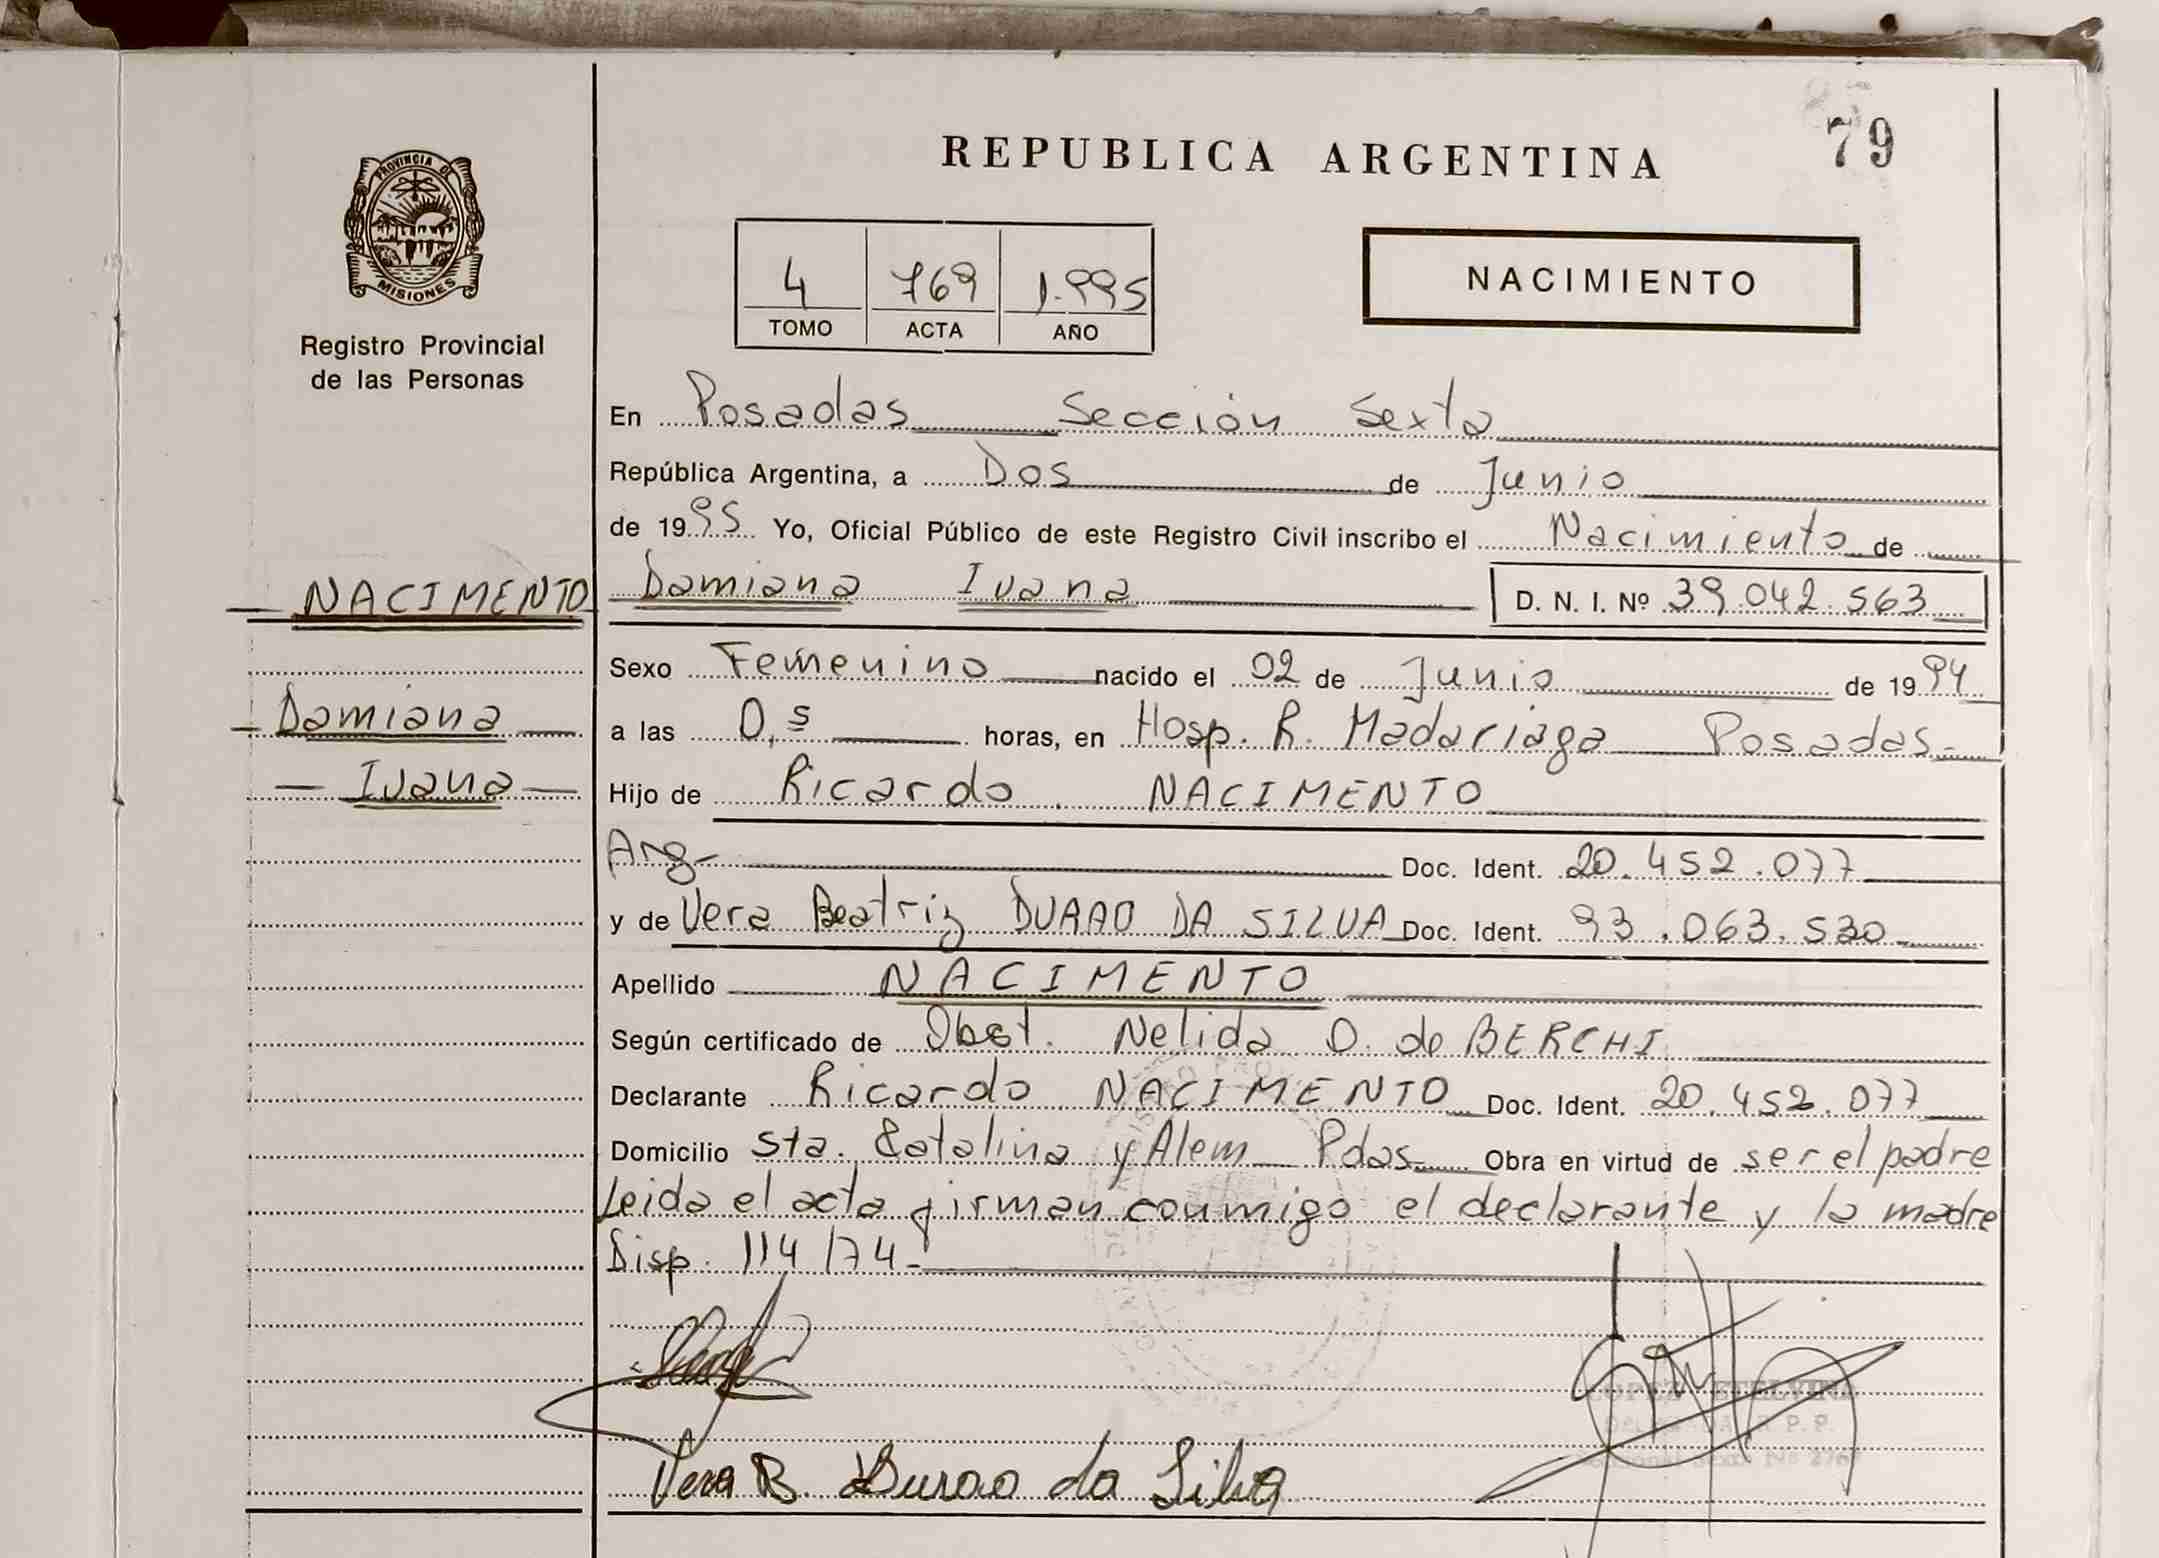 79
REPUBLICA ARGENTINA
PROVINCIA DE
MISIONES
Registro Provincial
de las Personas
4 769 1.995
TOMO ACTA AÑO
NACIMIENTO
En Posadas Sección Sexta
República Argentina, a Dos de Junio
de 1995 Yo, Oficial Público de este Registro Civil inscribo el Nacimiento de
NACIMENTO
Damiana Ivana D. N. I. Nº 39.042.563
Sexo Femenino nacido el 02 de Junio de 1994
Damiana
a las 0,5 horas, en Hosp. R. Madariaga Posadas-
Ivana
Hijo de Ricardo NACIMENTO
Arg- Doc. Ident. 20.452.077
y de Vera Beatriz DURAO DA SILVA Doc. Ident. 93.063.530-
Apellido NACIMENTO
Según certificado de Obst. Nelida O. de BERCHI
Declarante Ricardo NACIMENTO Doc. Ident. 20.452.077
Domicilio Sta. Catalina y Alem Pdas Obra en virtud de ser el padre
Leida el acta firman conmigo el declarante y la madre
Disp. 114/74-
ETELVINA
R. P. P.
Vera B. Durao da Silva